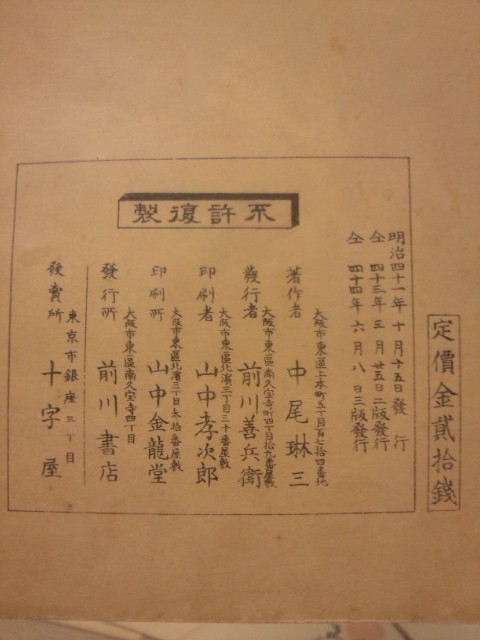 定價金貳拾錢
不許復製
明治四十一年十月十五日發行
仝四十三年三月廿五日二版發行
仝四十四年六月八日三版發行
大阪市東區上本町五丁目百七拾四番地
著作者 中尾琳三
大阪市東區南久宝寺町四丁目拾九番屋敷
發行者 前川善兵衛
大阪市東區北濱三丁目三十番屋敷
印刷者 山中孝次郎
大阪市東區北濱三丁目太拾番屋敷
印刷所 山中金龍堂
大阪市東區南久宝寺四丁目
發行所 前川書店
東京市銀座三丁目
發賣所 十字屋